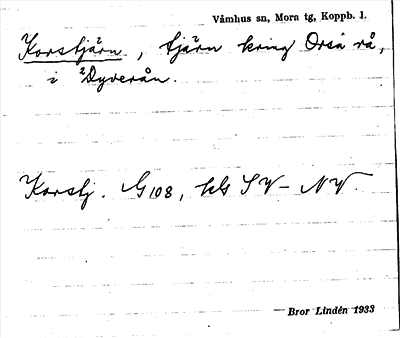 Våmhus sn, Mora tg, Koppb. l.
Korstjärn, tjärn kring Orsa rå,
i Dyverån.
Korstj. G 108, kls SV – NV.
Bror Lindén 1933